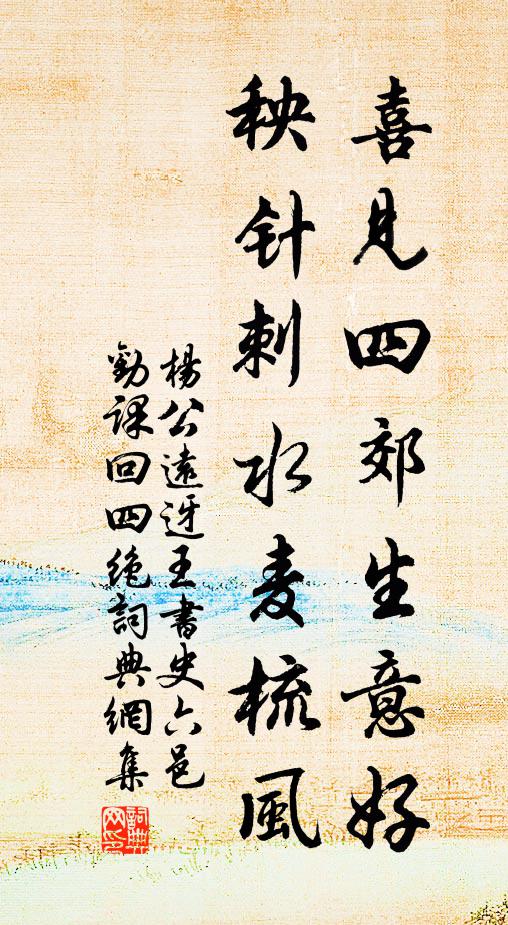 喜見四郊生意好
秧针刺水麦梳風
楊公遠迓王書史六邑
勸課回四絶詞典網集
詞典网印